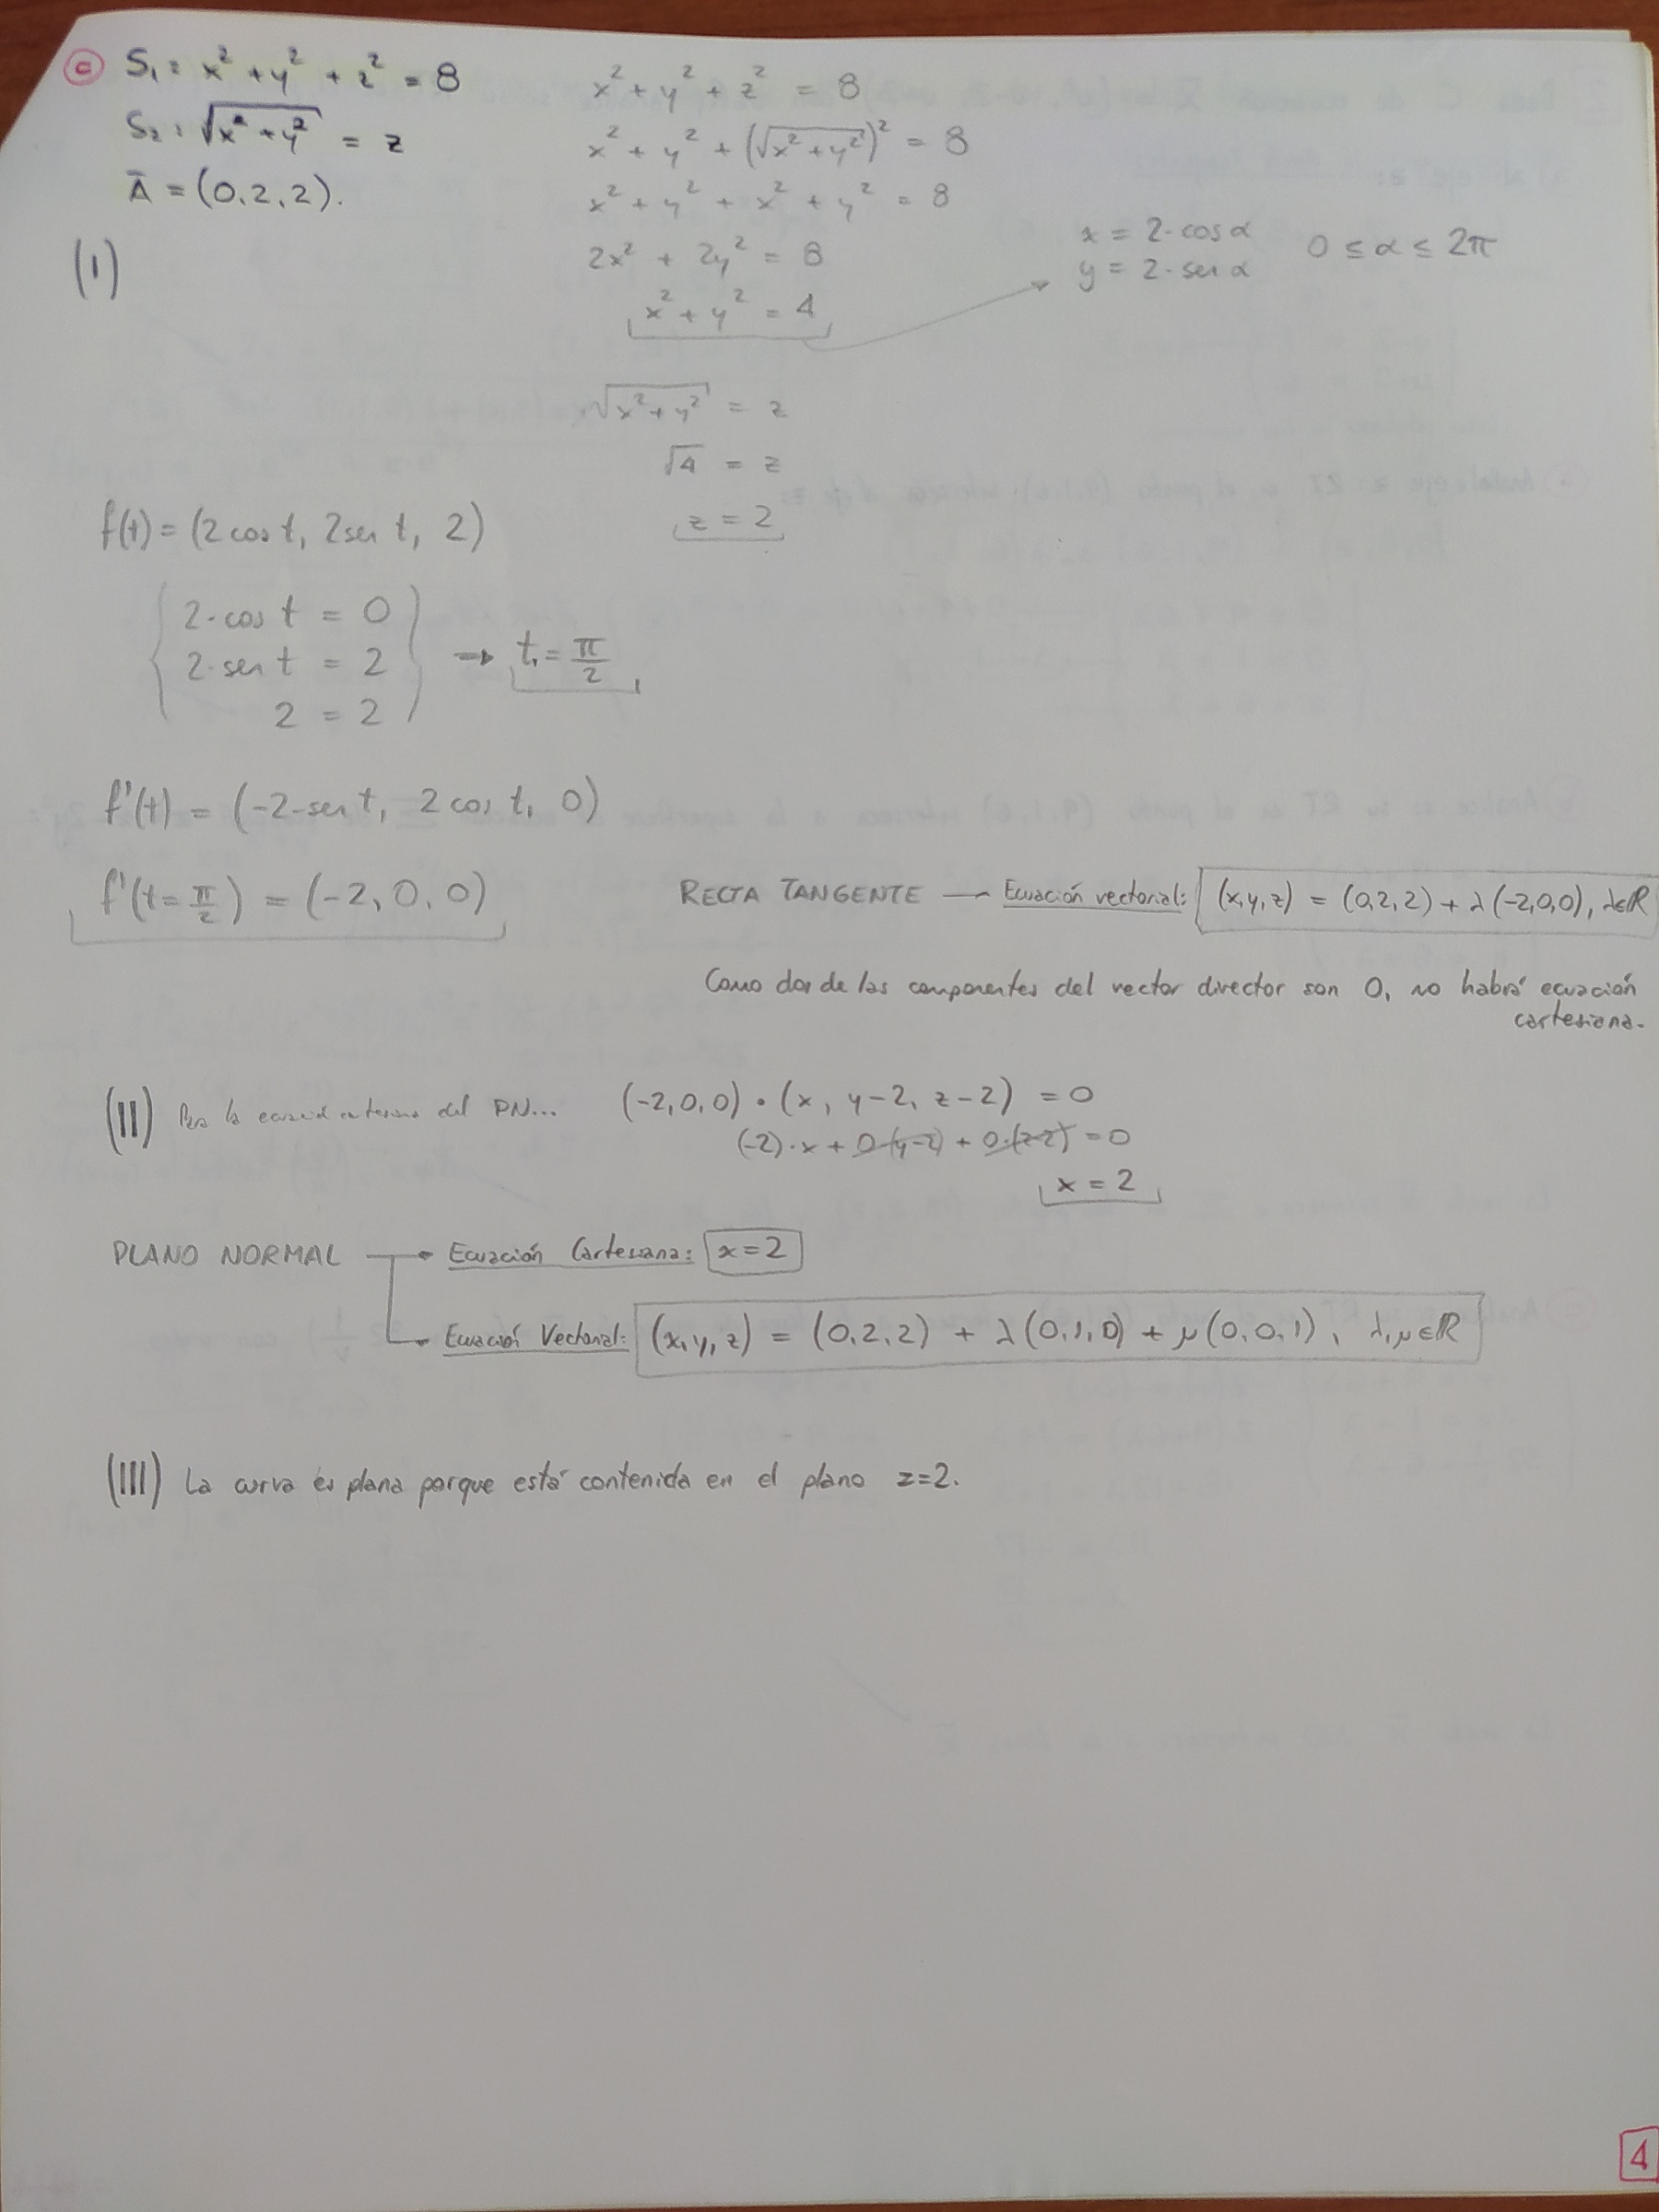 c S₁: x² + y² + z² = 8
S₂: √(x² + y²) = z
Ā = (0,2,2).
(I)
x² + y² + z² = 8
x² + y² + (√(x² + y²))² = 8
x² + y² + x² + y² = 8
2x² + 2y² = 8
x² + y² = 4
x = 2·cos α
y = 2·sen α
0 ≤ α ≤ 2π
√(x² + y²) = z
√4 = z
z = 2
f(t) = (2 cos t, 2 sen t, 2)
2·cos t = 0
2·sen t = 2
2 = 2
→ t₁ = π/2
f'(t) = (-2·sen t, 2 cos t, 0)
f'(t = π/2) = (-2, 0, 0)
RECTA TANGENTE — Ecuación vectorial: (x,y,z) = (0,2,2) + λ(-2,0,0), λ∈ℝ
Como dos de las componentes del vector director son 0, no habrá ecuación
cartesiana.
(II) la del PN... (-2,0,0) · (x, y-2, z-2) = 0
(-2)·x + 0·(y-2) + 0·(z-2) = 0
x = 2
PLANO NORMAL → Ecuación Cartesiana: x=2
→ Ecuación Vectorial: (x,y,z) = (0,2,2) + λ(0,1,0) + μ(0,0,1), λ,μ∈ℝ
(III) La curva es plana porque está contenida en el plano z=2.
4